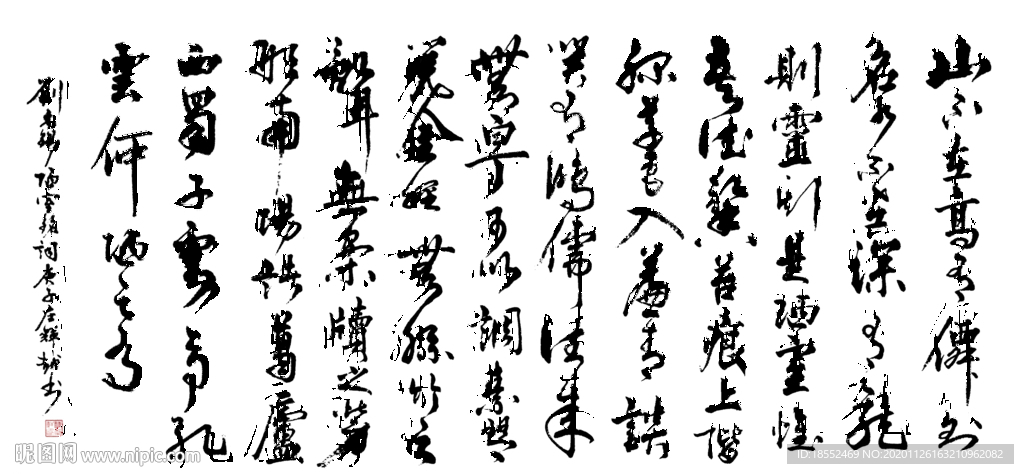 山不在高有僊則
名水不在深有龍
則靈斯是陋室惟
吾德馨苔痕上階
綠草色入簾青談
笑有鴻儒往來
無白丁可以調素琴
閱金經無絲竹之
亂耳無案牘之勞
形南陽諸葛廬
西蜀子雲亭孔
雲何陋之有
劉禹錫陋室銘詞庚子書
昵图网 www.nipic.com
ID:18552469 NO:20201126163210962082